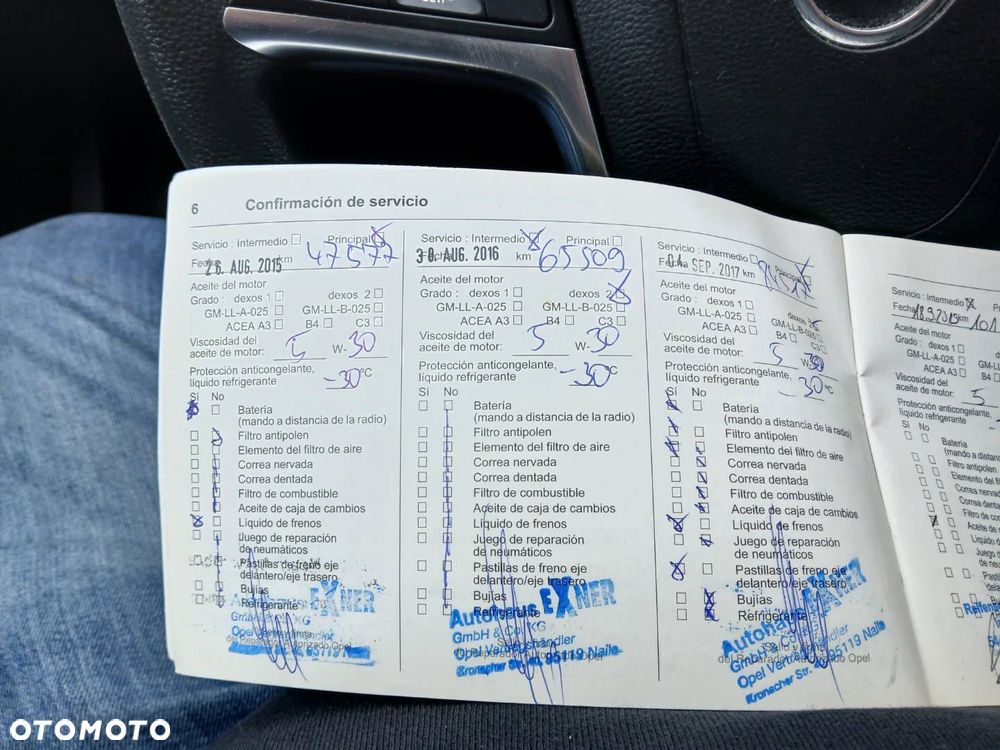 6 Confirmación de servicio
Servicio : Intermedio Principal
Fecha 26. AUG. 2015 km 47577
Aceite del motor
Grado : dexos 1 dexos 2
GM-LL-A-025 GM-LL-B-025
ACEA A3 B4 C3
Viscosidad del
aceite de motor: 5 W- 30
Protección anticongelante,
líquido refrigerante -30 °C
Sí No
Batería
(mando a distancia de la radio)
Filtro antipolen
Elemento del filtro de aire
Correa nervada
Correa dentada
Filtro de combustible
Aceite de caja de cambios
Líquido de frenos
Juego de reparación
de neumáticos
Pastillas de freno eje
delantero/eje trasero
Bujías
Refrigerante
EXNER
GmbH & Co. KG
Opel Vertragshändler
del Reparador Autorizado Opel
Servicio : Intermedio Principal
Fecha 30. AUG. 2016 km 65509
Aceite del motor
Grado : dexos 1 dexos 2
GM-LL-A-025 GM-LL-B-025
ACEA A3 B4 C3
Viscosidad del
aceite de motor: 5 W- 30
Protección anticongelante,
líquido refrigerante -30°C
Sí No
Batería
(mando a distancia de la radio)
Filtro antipolen
Elemento del filtro de aire
Correa nervada
Correa dentada
Filtro de combustible
Aceite de caja de cambios
Líquido de frenos
Juego de reparación
de neumáticos
Pastillas de freno eje
delantero/eje trasero
Bujías
Refrigerante
Autohaus EXNER
GmbH & Co. KG
Opel Vertragshändler
del Reparador Autorizado Opel
Kronacher Str. 95119 Naila
Servicio : Intermedio Principal
Fecha 04. SEP. 2017 km
Aceite del motor
Grado : dexos 1 dexos 2
GM-LL-A-025 GM-LL-B-025
ACEA A3 B4 C3
Viscosidad del
aceite de motor: 5 W- 30
Protección anticongelante,
líquido refrigerante -30°C
Sí No
Batería
(mando a distancia de la radio)
Filtro antipolen
Elemento del filtro de aire
Correa nervada
Correa dentada
Filtro de combustible
Aceite de caja de cambios
Líquido de frenos
Juego de reparación
de neumáticos
Pastillas de freno eje
delantero/eje trasero
Bujías
Refrigerante
Autohaus EXNER
GmbH & Co. KG
Opel Vertragshändler
del Reparador Autorizado Opel
Kronacher Str. 95119 Naila
Servicio : Intermedio
Fecha km
Aceite del motor
Grado : dexos 1
GM-LL-A-025
ACEA A3 B4
Viscosidad del
aceite de motor: 5
Protección anticongelante,
líquido refrigerante
Sí No
Batería
(mando a distan
Filtro antipolen
Elemento del fil
Correa nervada
Correa dentada
Filtro de co
Aceite de c
Líquido d
Juego
de ne
Pasti
dela
Buj
OTOMOTO